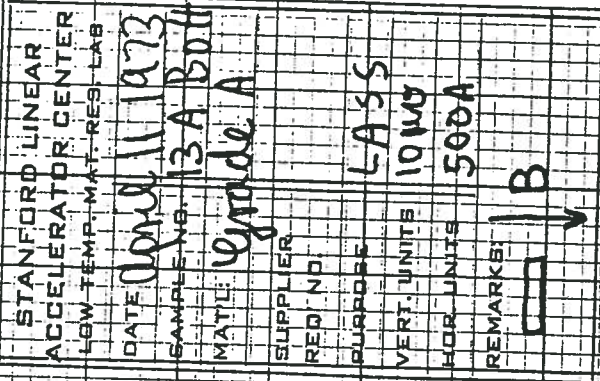 STANFORD LINEAR
ACCELERATOR CENTER
LOW TEMP. MAT. RES. LAB
DATE April 11 1973
SAMPLE NO. 13 A Bott
MAT'L: Grade A
SUPPLIER
REQ. NO.
PURPOSE LASS
VERT. UNITS 10 µv
HOR. UNITS 500A
REMARKS:
B